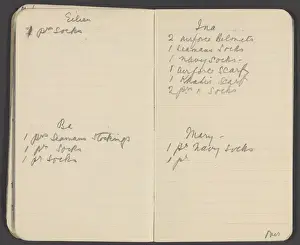 Eileen
1 prs Socks
Be
1 prs Seamans Stockings
1 pr Socks
1 pr Socks
Ina
2 Airforce Helmets
1 Seamans Socks
1 Navy Socks
1 Airforce Scarf
1 Khaki Scarf
2 prs Socks
Mary -
1 pr Navy Socks
1 pr